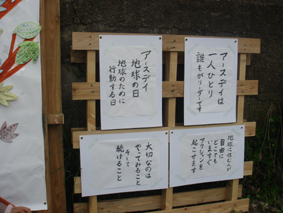 アースデイは
一人ひとり
誰もがリーダーです
アースデイ
地球の日
地球のために
行動する日
自由に
どこでも
いますぐ
アクションを
起こせます
大切なのは
やってみること
そして
続けること